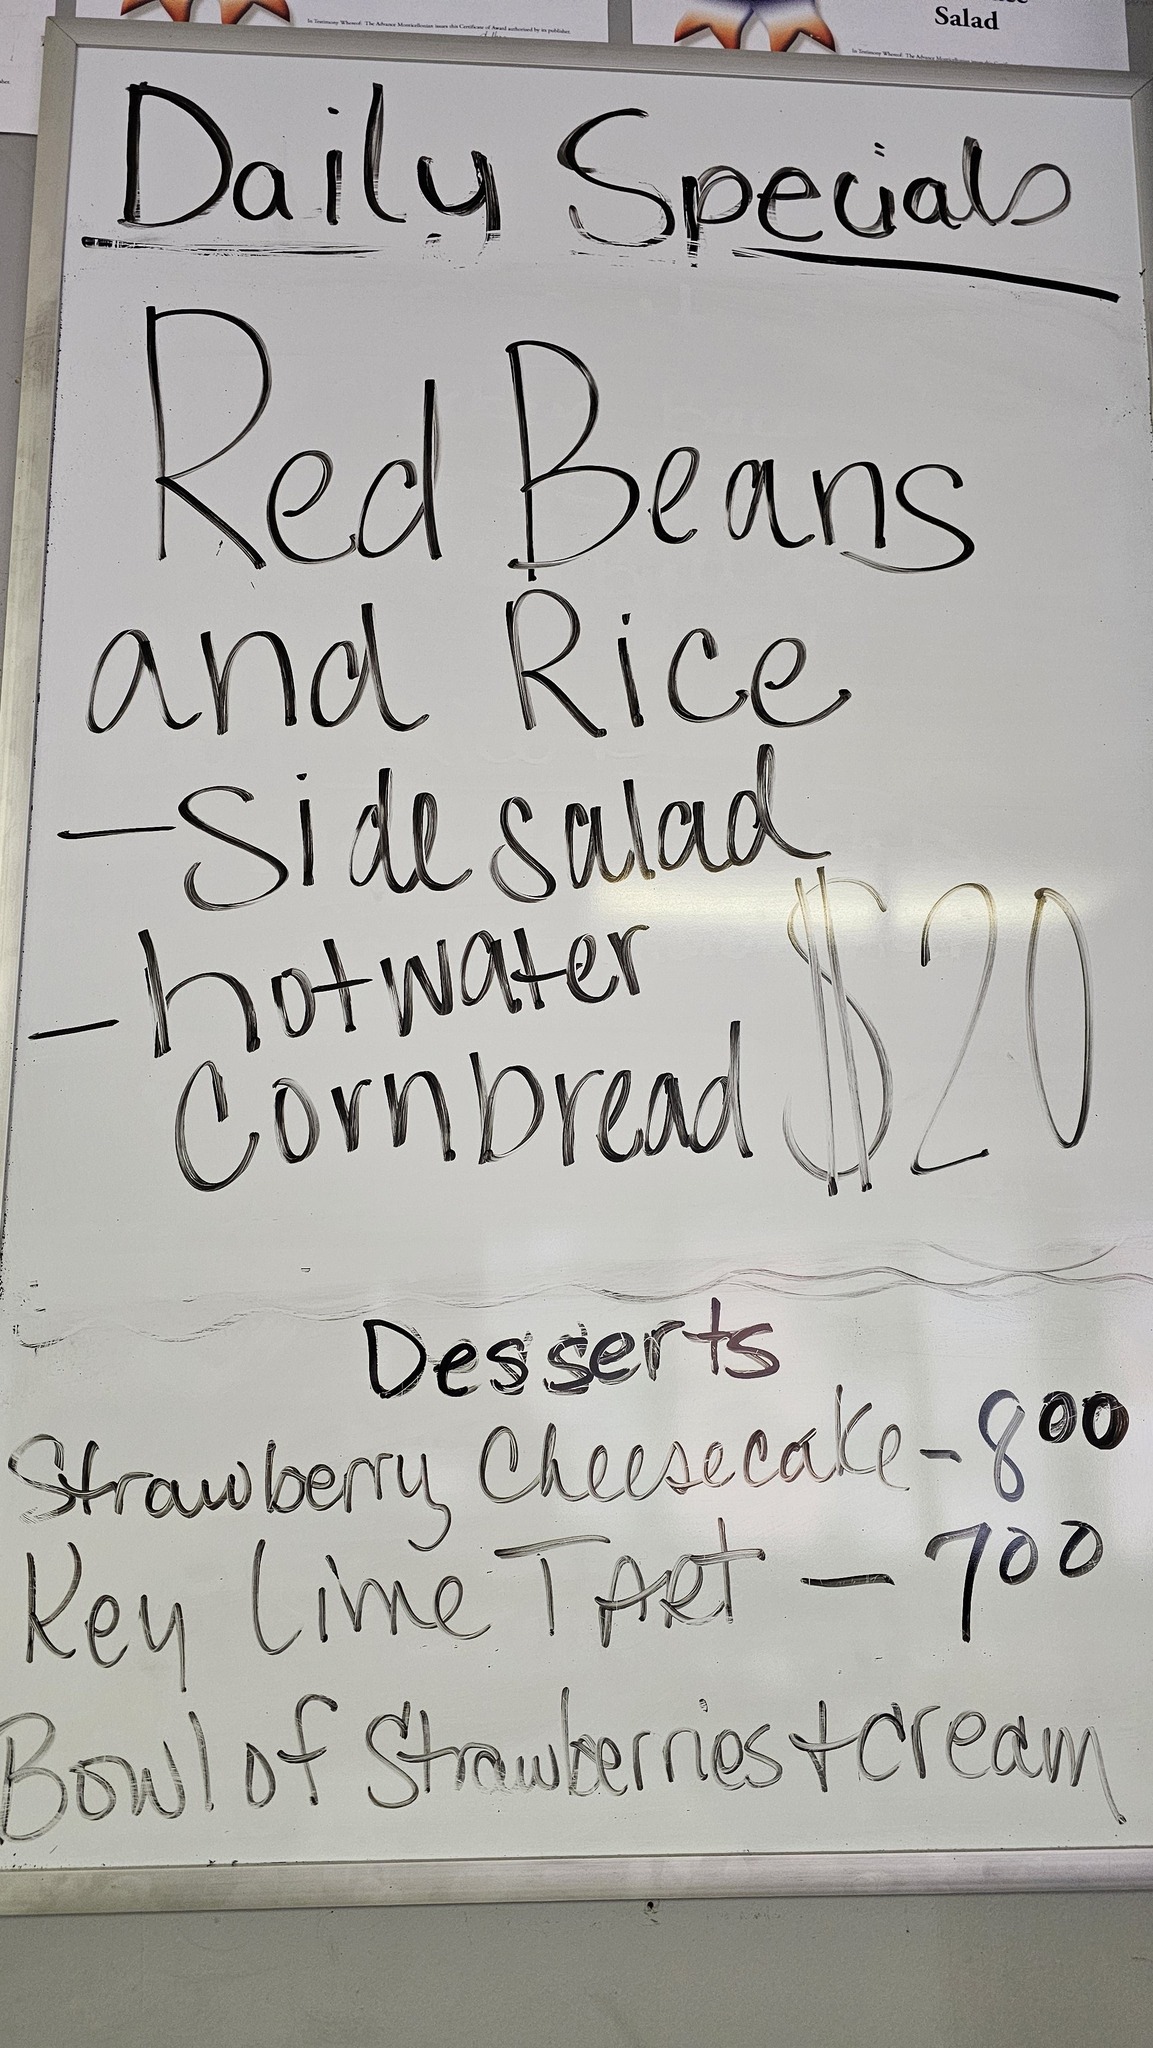 In Testimony Whereof: The Advance Monticellonian issues this Certificate of Award authorized by its publisher.
Salad
Daily Specials
Red Beans
and Rice
- Side salad
- hotwater
Cornbread $20
Desserts
Strawberry Cheesecake - 8 00
Key Lime TART - 7 00
Bowl of Strawberries + cream